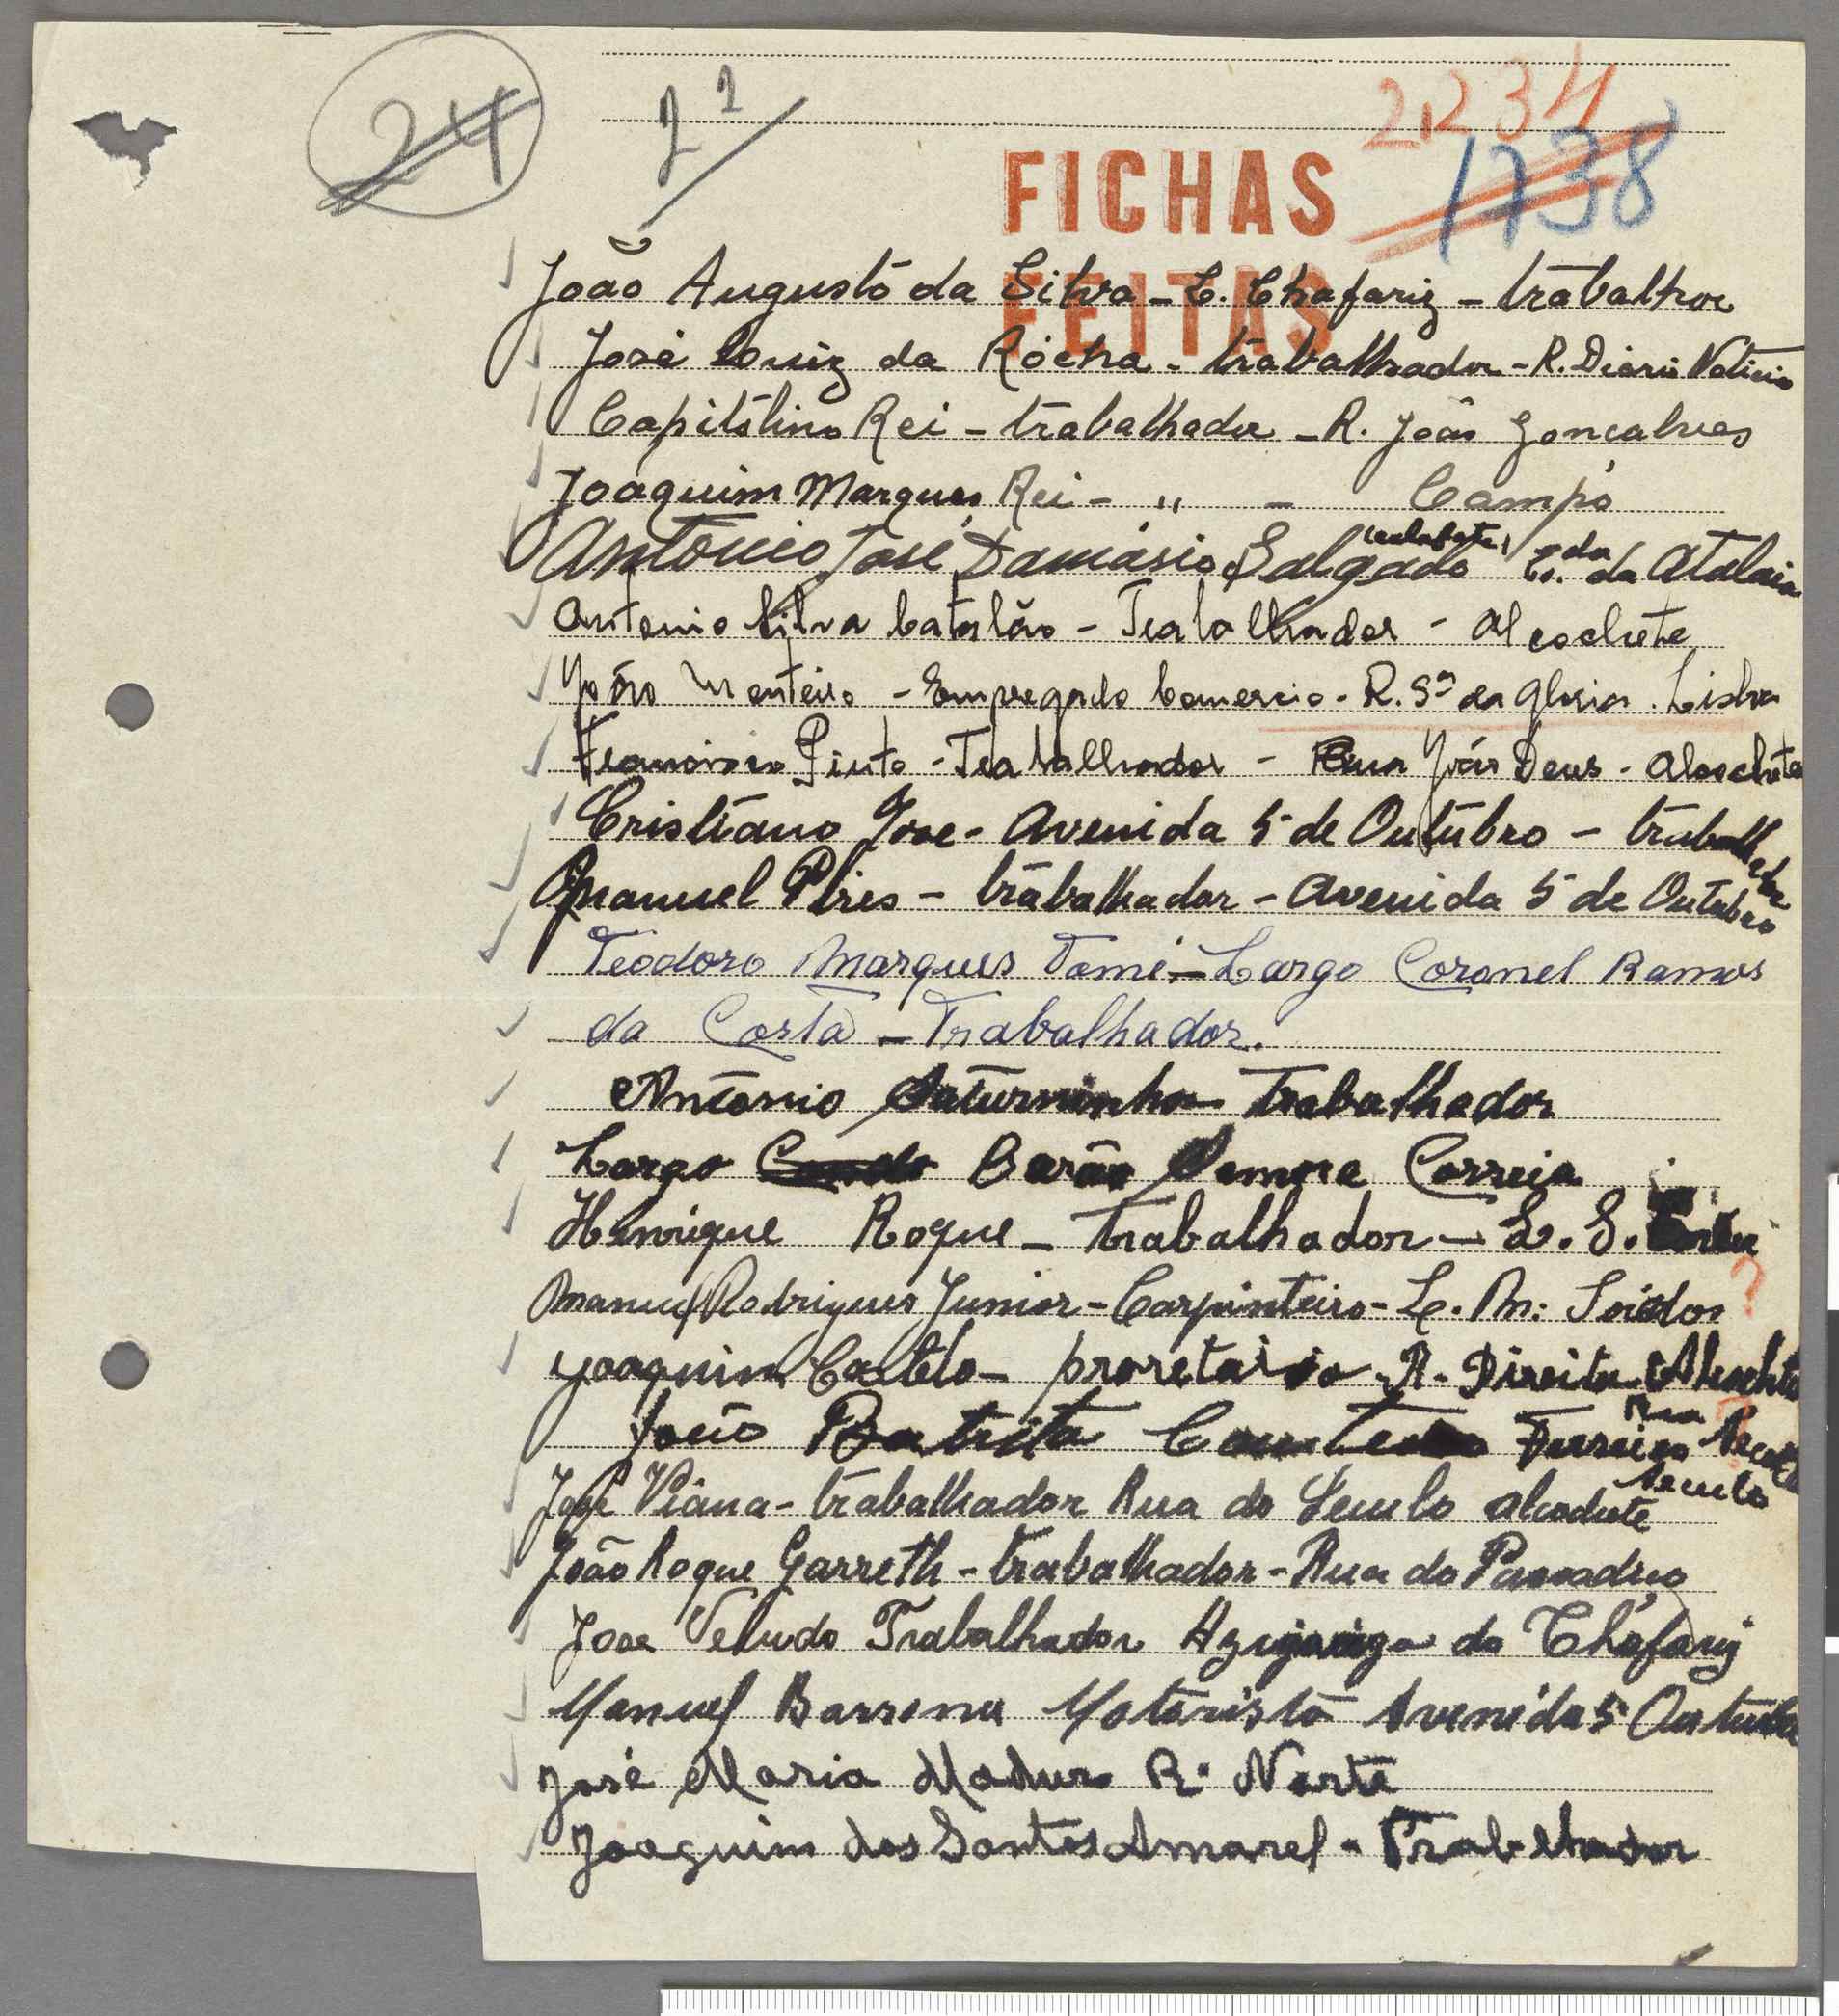 24 22 2234
FICHAS 1738
FEITAS
João Augusto da Silva - L. Chafariz - trabalhor
José Luiz da Rocha - trabalhador - R. Diario Noticia
Capitolino Rei - trabalhador - R. João Gonçalves
Joaquim Marques Rei - " - Campo
António José Damásio Salgado (calafate) da da Atalaia
Antonio Silva Catalão - Trabalhador - Alcochete
João Monteiro - Empregado Comercio - R. Sª da Gloria. Lisboa
Francisco Pinto - Trabalhador - Rua João Deus - Alcochete
Cristiano Jose - Avenida 5 de Outubro - trabalhador
Manuel Pires - trabalhador - Avenida 5 de Outubro
Teodoro Marques Tomé - Largo Coronel Ramos
da Costa - Trabalhador.
António Saturninho Trabalhador
Largo Barão Samora Correia
Henrique Roque - Trabalhador - L. S.
Manuel Rodrigues Junior - Carpinteiro - L. M: ?
Joaquim Castelo - proretario - R. Direita Alcochete
João Batista Ferreira Rua
José Viana - trabalhador Rua do Seculo Alcochete Seculo
João Roque Garreth - trabalhador - Rua do Passadiço
Jose Veludo Trabalhador do Chafariz
Manuel Barrena Motorista Avenida 5 Outubro
José Maria Maduro R. Norte
Joaquim dos Santos Amarel - Trabalhador